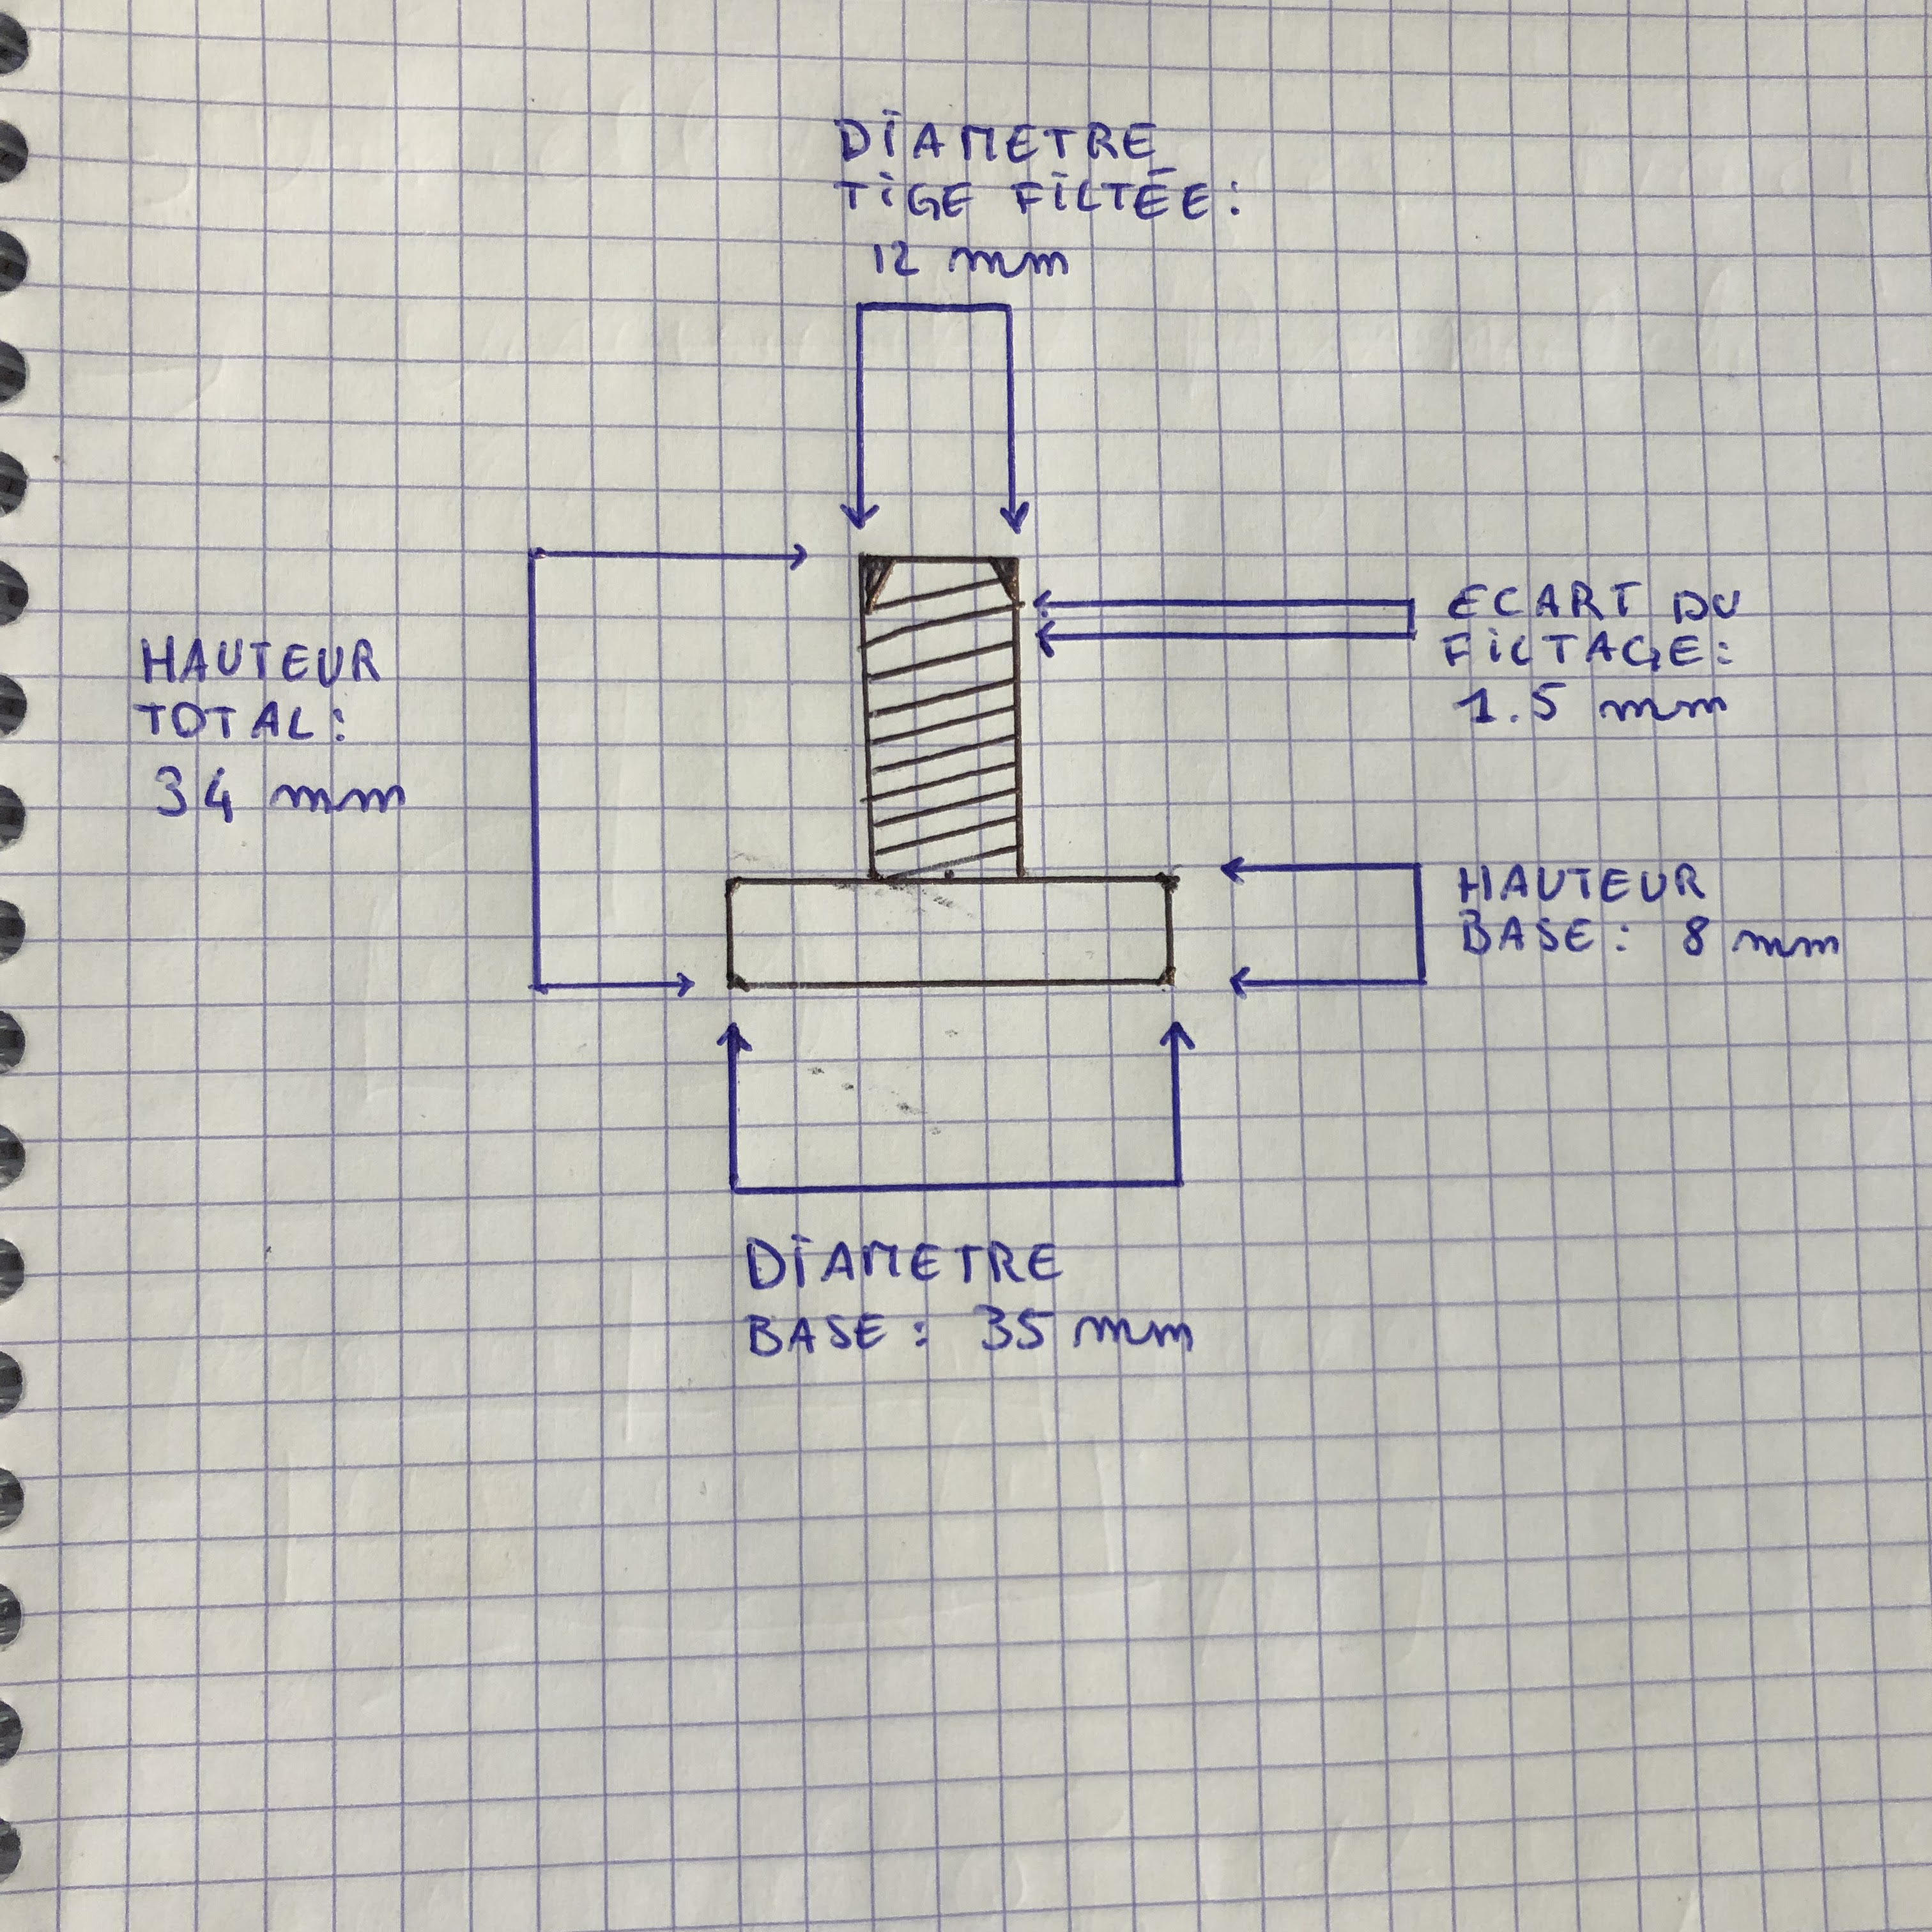 DIAMETRE
TIGE FILTÉE:
12 mm
ECART DU
FILTAGE:
1.5 mm
HAUTEUR
TOTAL:
34 mm
HAUTEUR
BASE: 8 mm
DIAMETRE
BASE: 35 mm